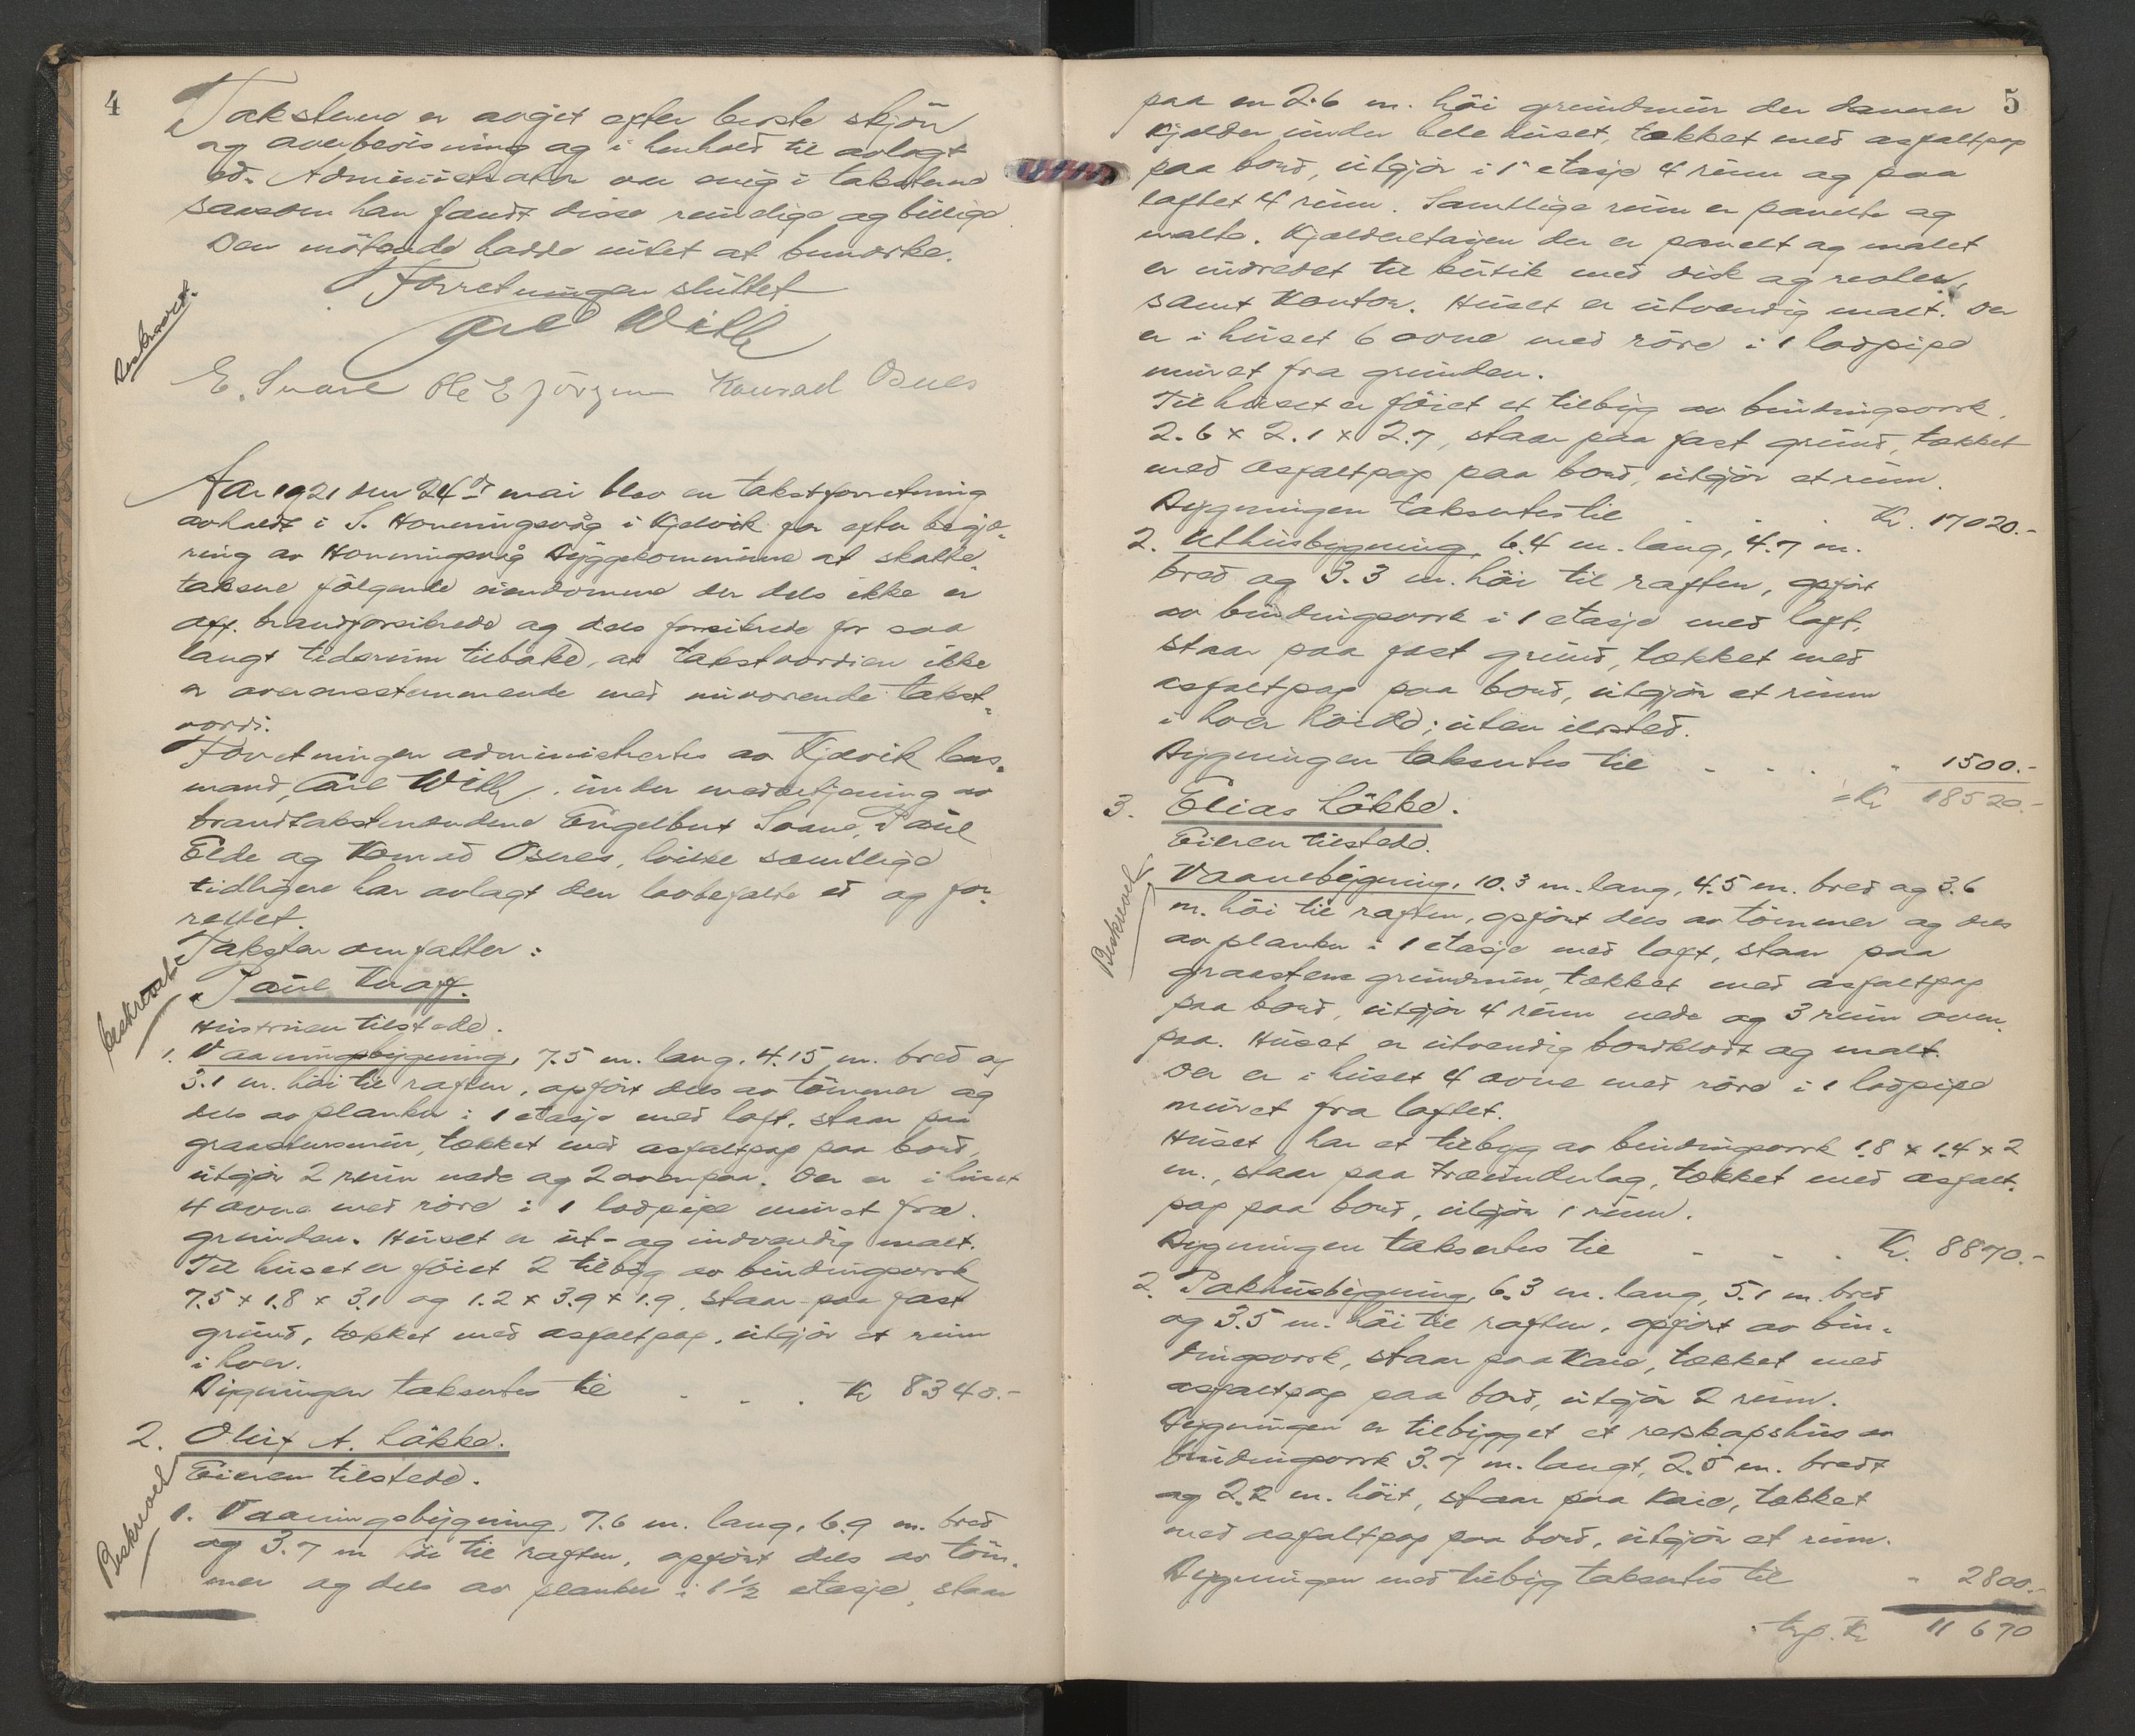 4
Taksterne er avgit efter beste skjön
og overbevisning og i henhold til avlagt
ed. Administrator var enig i taksterne
saasom han fandt disse rimelige og billige
Den mötende hadde intet at bemerke.
Forretningen sluttet
Carl With
Beskrevet.
E. Svane Ole E Jörgensen Konrad Osnes
Aar 1921 den 24de mai blev en takstforretning
avholdt i S. Honningsvåg i Kjelvik for efter begjæ-
ring av Honningsvåg Byggekommune at skatte-
taksere fölgende eiendomme der dels ikke er
off. brandforsikrede og dels forsikrede for saa
langt tidsrum tilbake, at takstværdien ikke
er overensstemmende med nuværende takst-
værdi.
Forretningen administrertes av Kjelvik lens-
mand, Carl With, under medbetjening av
brandtakstmændene Engelbert Svane, Paul
Elde og Konrad Osnes, hvilke samtlige
tidligere har avlagt den lovbefalte ed og for-
rettet.
Taksten omfatter:
beskrevet
1. Paul Knaff.
Hustruen tilstede.
1. Vaaningsbygning, 7.5 m. lang, 4.15 m. bred og
3.1 m. höi til raften, opfört dels av tömmer og
dels av planker i 1 etasje med loft, staar paa
graastensmur, tækket med asfaltpap paa bord,
utgjör 2 rum nede og 2 ovenpaa. Der er i huset
4 ovne med rörs i 1 lodpipe muret fra
grunden. Huset er ut- og indvendig malt.
Til huset er föiet 2 tilbyg av bindingsverk
7.5 x 1.8 x 3.1 og 1.2 x 3.9 x 1.9, staar paa fast
grund, tækket med asfaltpap, utgjör et rum
i hver.
Bygningen taksertes til . . . Kr 8340.-
2. Oluf A. Løkke.
Beskrevet
Eieren tilstede.
1. Vaaningsbygning, 7.6 m. lang, 6.9 m. bred
og 3.7 m höi til raften, opfört dels av töm-
mer og dels av planker i 1½ etasje, staar
5
paa en 2.6 m. höi grundmur der danner
kjælder under hele huset, tækket med asfaltpap
paa bord, utgjör i 1ste etasje 4 rum og paa
loftet 4 rum. Samtlige rum er panelte og
malte. Kjælderetagen der er panelt og malet
er indredet til butik med disk og reoler,
samt kontor. Huset er utvendig malt. Der
er i huset 6 ovne med röre i 1 lodpipe
muret fra grunden.
Til huset er föiet et tilbyg av bindingsverk.
2.6 x 2.1 x 2.7, staar paa fast grund, tækket
med asfaltpap paa bord, utgjör et rum.
Bygningen taksertes til . . . Kr. 17020.-
2. Uthusbygning, 6.4 m. lang, 4.7 m.
bred og 3.3 m. höi til raften, opfört
av bindingsverk i 1 etasje med loft,
staar paa fast grund, tækket med
asfaltpap paa bord, utgjör et rum
i hver höide; uten ildsted.
Bygningen taksertes til . . . " 1500.-
= Kr 18520.-
3. Elias Løkke.
Eieren tilstede.
Beskrevet
Vaanebygning, 10.3 m. lang, 4.5 m. bred og 3.6
m. höi til raften, opfört dels av tömmer og dels
av planker i 1 etasje med loft, staar paa
graastens grundmur, tækket med asfaltpap
paa bord, utgjör 4 rum nede og 3 rum oven-
paa. Huset er utvendig bordklædt og malt.
Der er i huset 4 ovne med röre i 1 lodpipe
muret fra loftet.
Huset har et tilbyg av bindingsverk 1.8 x 1.4 x 2
m., staar paa træunderlag, tækket med asfalt-
pap paa bord, utgjör 1 rum.
Bygningen taksertes til . . . Kr. 8870.-
2. Pakhusbygning, 6.3 m. lang, 5.1 m. bred
og 3.5 m. höi til raften, opfört av bin-
dingsverk, staar paa kaie, tækket med
asfaltpap paa bord, utgjör 2 rum.
Bygningen er tilbygget et redskapshus av
bindingsverk 3.7 m. langt, 2.5 m. bredt
og 2.2 m. höit, staar paa kaie, tækket
med asfaltpap paa bord, utgjör et rum.
Bygningen med tilbyg taksertes til " 2800.-
Kr 11 670